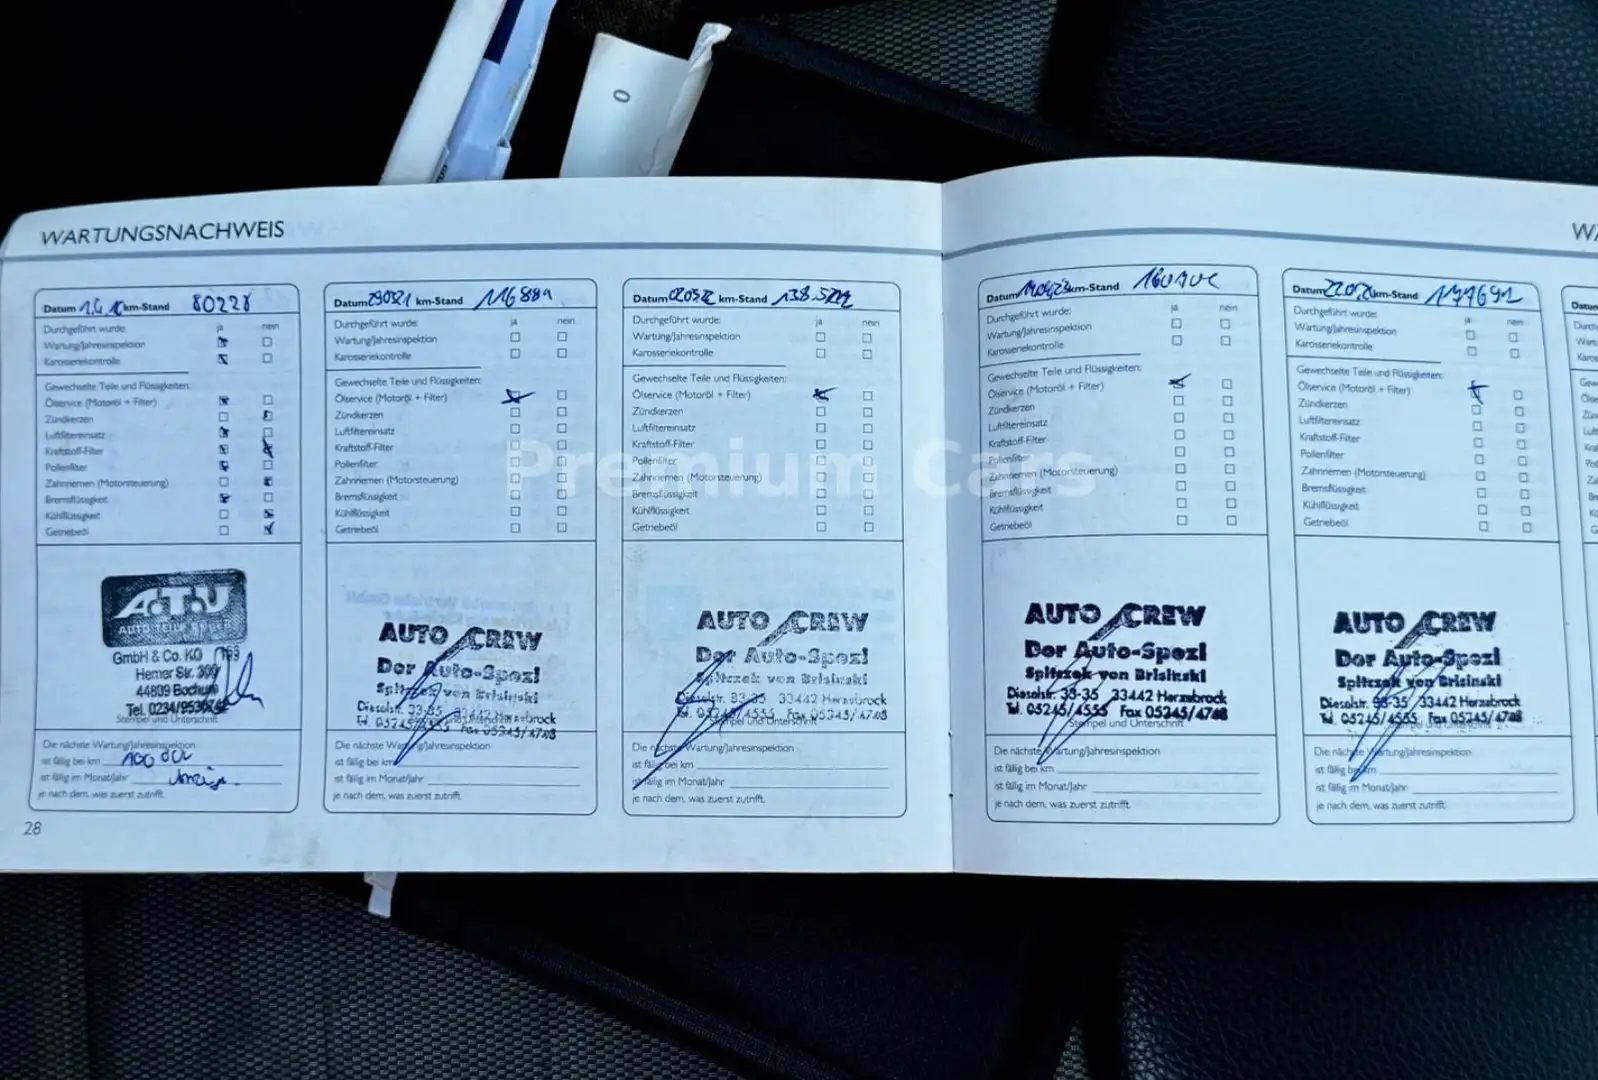 0
WARTUNGSNACHWEIS
WA
Datum km-Stand 80228
Durchgeführt wurde: ja nein
Wartung/Jahresinspektion
Karosseriekontrolle
Gewechselte Teile und Flüssigkeiten:
Ölservice (Motoröl + Filter)
Zündkerzen
Luftfiltereinsatz
Kraftstoff-Filter
Pollenfilter
Zahnriemen (Motorsteuerung)
Bremsflüssigkeit
Kühlflüssigkeit
Getriebeöl
A.T.U
AUTO TEILE UNGER
GmbH & Co. KG
Hemer Str.
44809 Bochum
Tel. 0234/
Stempel und Unterschrift
Die nächste Wartung/Jahresinspektion
ist fällig bei km 100 000
ist fällig im Monat/Jahr
je nach dem, was zuerst zutrifft.
28
Datum km-Stand
Durchgeführt wurde: ja nein
Wartung/Jahresinspektion
Karosseriekontrolle
Gewechselte Teile und Flüssigkeiten:
Ölservice (Motoröl + Filter)
Zündkerzen
Luftfiltereinsatz
Kraftstoff-Filter
Pollenfilter
Zahnriemen (Motorsteuerung)
Bremsflüssigkeit
Kühlflüssigkeit
Getriebeöl
AUTO CREW
Der Auto-Spezi
Spitczek von Brisinski
Dieselstr. 33-35 33442 Herzebrock
Tel. 05245/4555 Fax 05245/4708
Die nächste Wartung/Jahresinspektion
ist fällig bei km
ist fällig im Monat/Jahr
je nach dem, was zuerst zutrifft.
Datum km-Stand
Durchgeführt wurde: ja nein
Wartung/Jahresinspektion
Karosseriekontrolle
Gewechselte Teile und Flüssigkeiten:
Ölservice (Motoröl + Filter)
Zündkerzen
Luftfiltereinsatz
Kraftstoff-Filter
Pollenfilter
Zahnriemen (Motorsteuerung)
Bremsflüssigkeit
Kühlflüssigkeit
Getriebeöl
AUTO CREW
Der Auto-Spezi
Spitczek von Brisinski
Dieselstr. 33-35 33442 Herzebrock
Tel. 05245/4555 Fax 05245/4708
Stempel und Unterschrift
Die nächste Wartung/Jahresinspektion
ist fällig bei km
ist fällig im Monat/Jahr
je nach dem, was zuerst zutrifft.
Datum km-Stand
Durchgeführt wurde: ja nein
Wartung/Jahresinspektion
Karosseriekontrolle
Gewechselte Teile und Flüssigkeiten:
Ölservice (Motoröl + Filter)
Zündkerzen
Luftfiltereinsatz
Kraftstoff-Filter
Pollenfilter
Zahnriemen (Motorsteuerung)
Bremsflüssigkeit
Kühlflüssigkeit
Getriebeöl
AUTO CREW
Der Auto-Spezi
Spitczek von Brisinski
Dieselstr. 33-35 33442 Herzebrock
Tel. 05245/4555 Fax 05245/4708
Stempel und Unterschrift
Die nächste Wartung/Jahresinspektion
ist fällig bei km
ist fällig im Monat/Jahr
je nach dem, was zuerst zutrifft.
Datum km-Stand 177691
Durchgeführt wurde: ja nein
Wartung/Jahresinspektion
Karosseriekontrolle
Gewechselte Teile und Flüssigkeiten:
Ölservice (Motoröl + Filter)
Zündkerzen
Luftfiltereinsatz
Kraftstoff-Filter
Pollenfilter
Zahnriemen (Motorsteuerung)
Bremsflüssigkeit
Kühlflüssigkeit
Getriebeöl
AUTO CREW
Der Auto-Spezi
Spitczek von Brisinski
Dieselstr. 33-35 33442 Herzebrock
Tel. 05245/4555 Fax 05245/4708
Die nächste Wartung/Jahresinspektion
ist fällig bei km
ist fällig im Monat/Jahr
je nach dem, was zuerst zutrifft.
Premium Cars